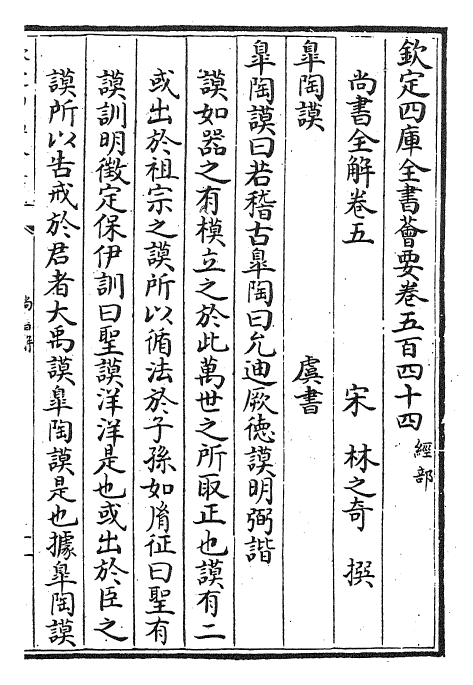 欽定四庫全書薈要卷五百四十四 經部
尚書全解卷五 宋 林之奇 撰
皐陶謨 虞書
皐陶謨曰若稽古皐陶曰允迪厥德謨明弼諧
謨如器之有模立之於此萬世之所取正也謨有二
或出於祖宗之謨所以循法於子孫如胤征曰聖有
謨訓明徵定保伊訓曰聖謨洋洋是也或出於臣之
謨所以告戒於君者大禹謨皐陶謨是也據皐陶謨